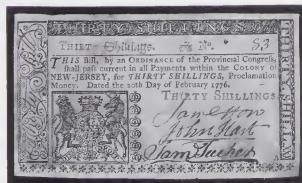 THIRTY SHILLINGS.
Thirty Shillings. No. 83
THIS Bill, by an ORDINANCE of the Provincial Congress,
shall pass current in all Payments within the COLONY of
NEW-JERSEY, for THIRTY SHILLINGS, Proclamation
Money. Dated the 20th Day of February 1776.
THIRTY SHILLINGS.
Sam How
John Hart
Sam Tucker